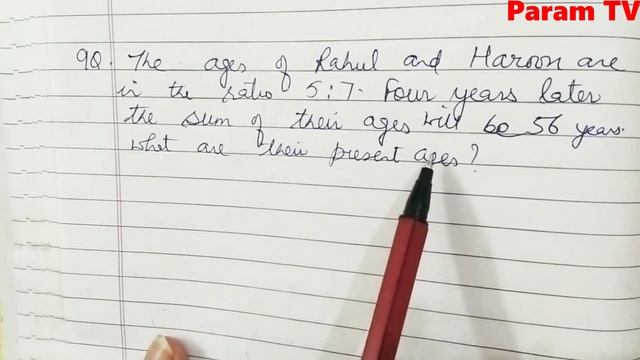 Param TV
9Q. The ages of Rahul and Haroon are
in the ratio 5:7. Four years later
the sum of their ages will be 56 years.
what are their present ages?